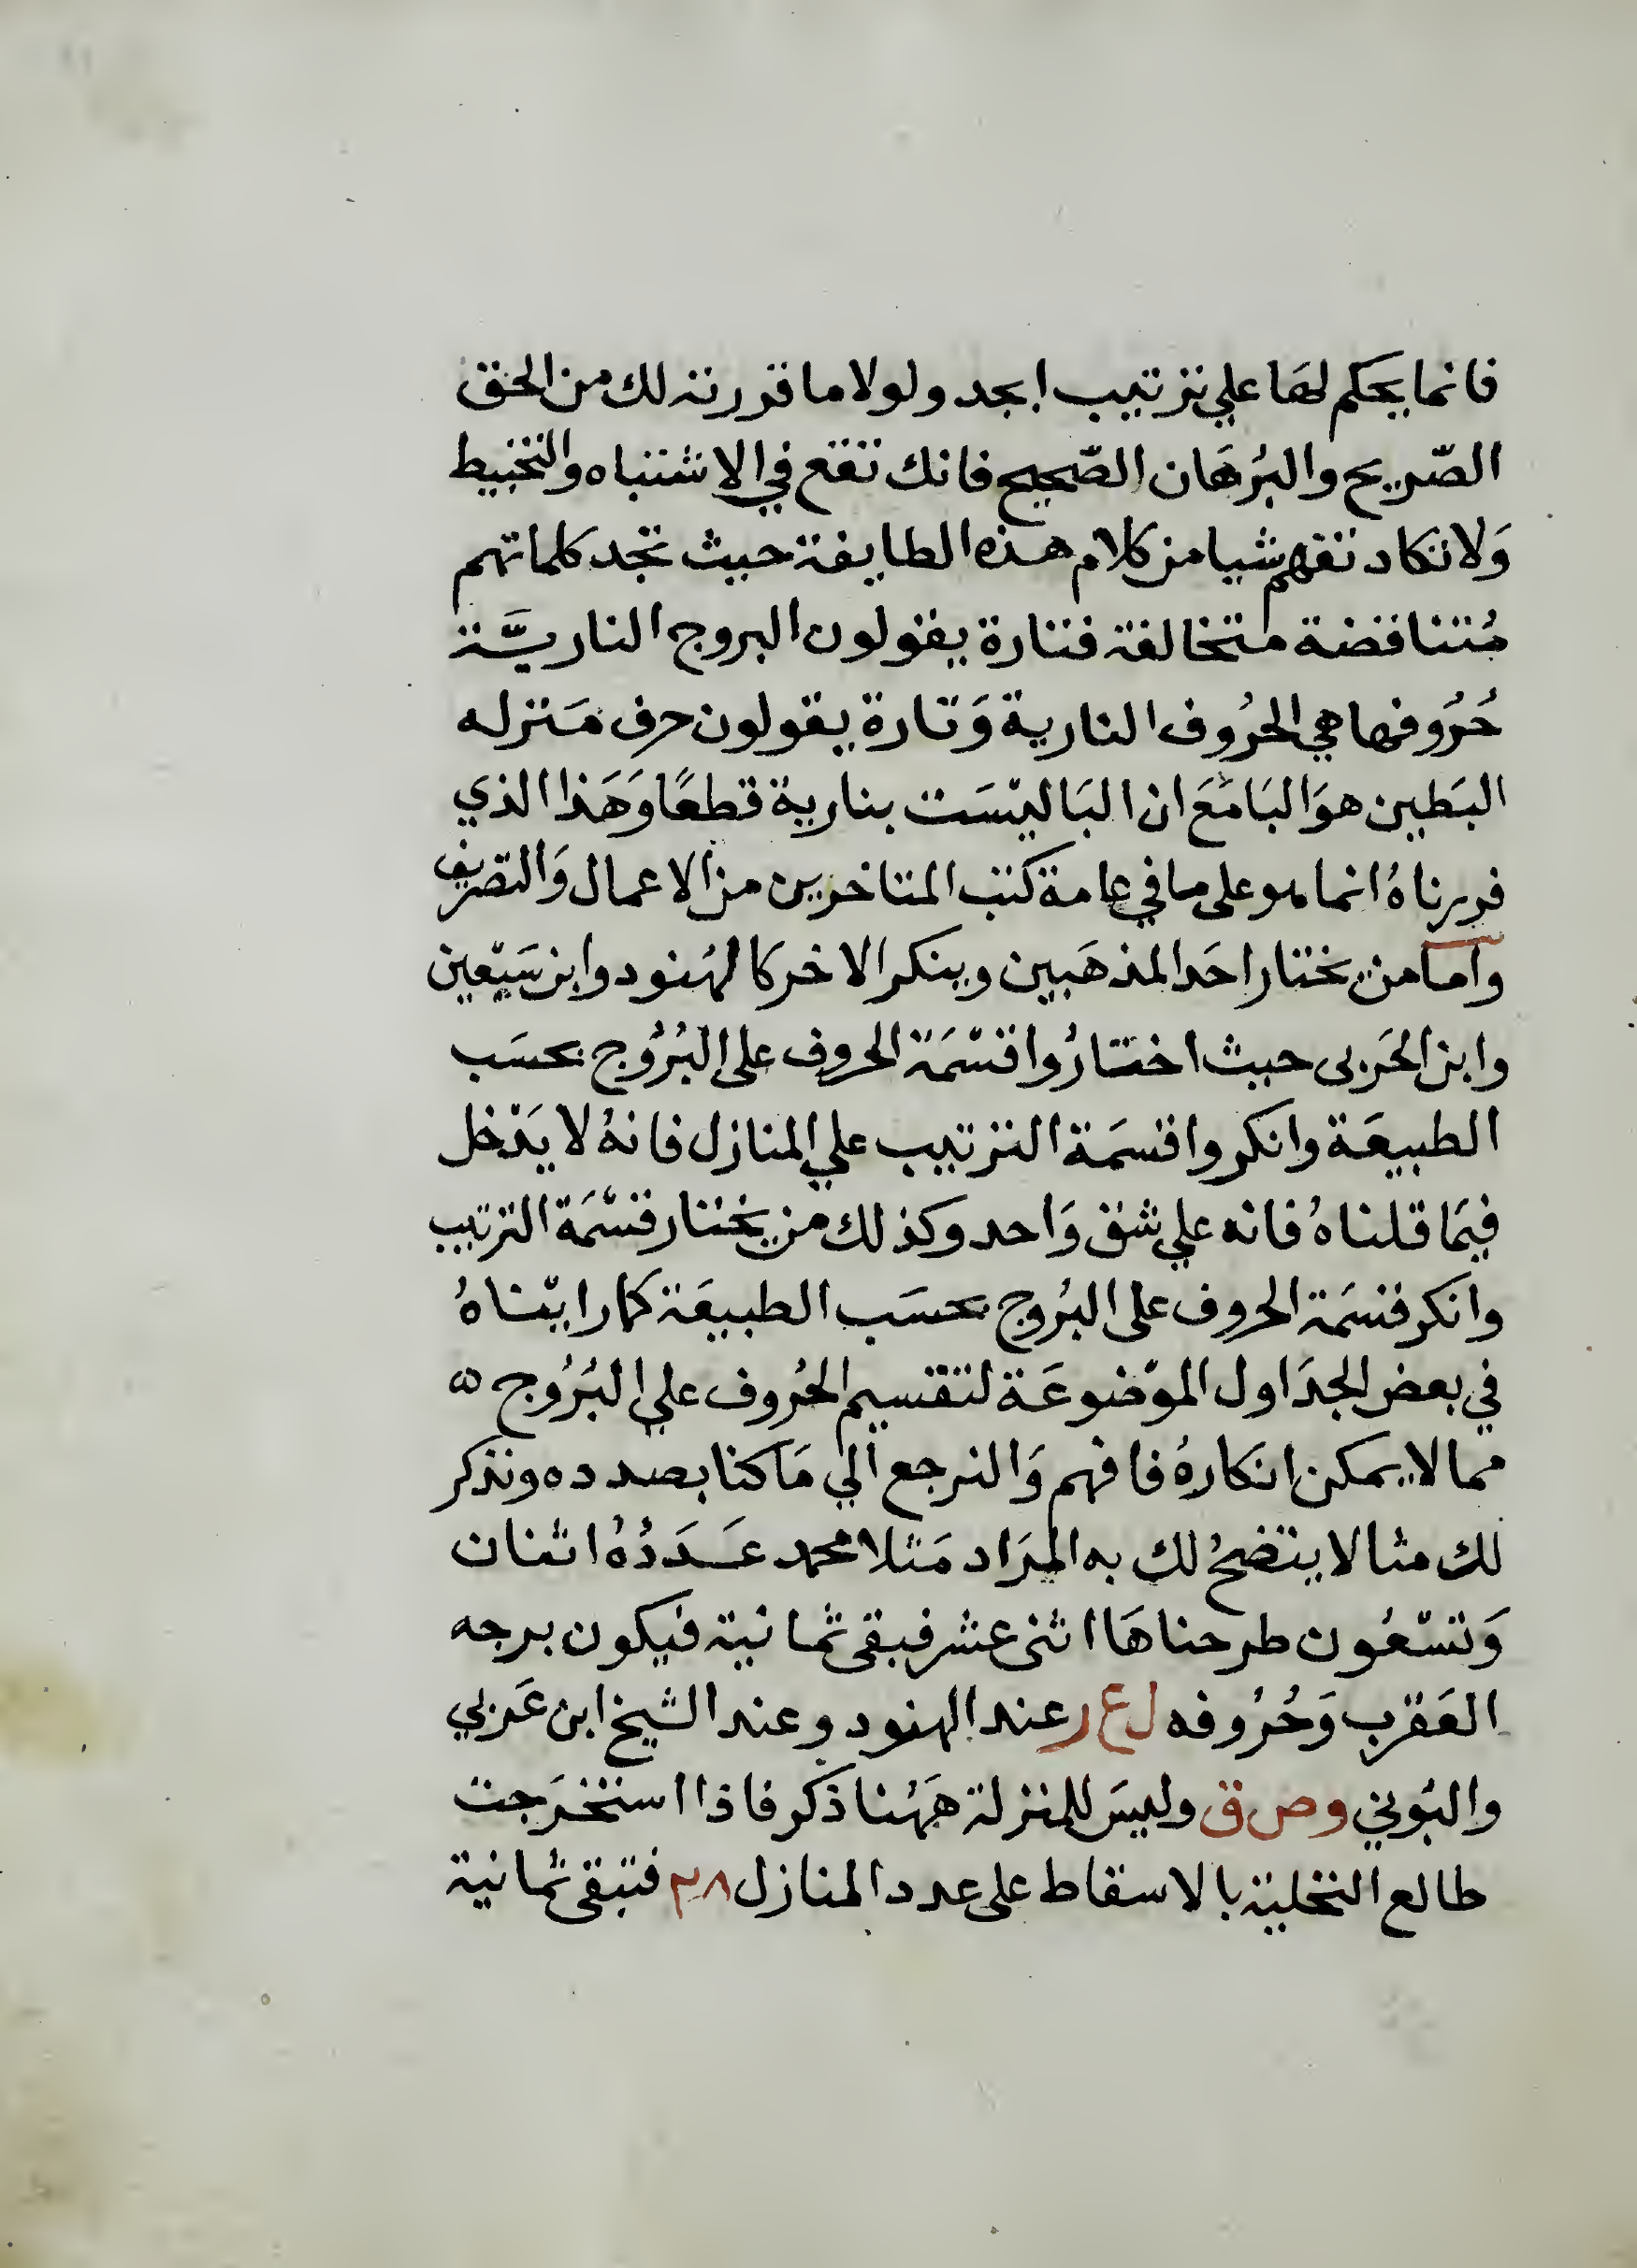 فانما يحكم لها علي ترتيب ابجد ولولا ما قررته لك من الحق
الصّريح والبُرهَان الصّحيح فانك تقع في الاشتباه والتخبيط
وَلا تكاد تفهم شيا من كلام هذه الطايفة حيث تجد كلماتهم
مُتناقضة متخالفة فتارة يقولون البروج الناريَّة
حُرُوفها هي الحُرُوف النارية وَتارة يقولون حرف مَنزله
البَطين هوَ البَا مَعَ ان البَا ليْسَت بنارية قطعًا وَهَذا الذي
قررناهُ انما هو على ما في عامة كتب المتاخرين من الاعمال وَالتصريف
واما من يختار احَد المذهَبين وينكر الاخر كالهُنود وابن سَبْعين
وابن الحَربى حيث اختارُوا قسْمَة الحروف على البُرُوج بحسَب
الطبيعَة وانكروا قسمَة الترتيب علي المنازل فانهُ لا يَدْخل
فيمَا قلناهُ فانه علي شق وَاحد وكذلك من يختار قسْمَة الترتيب
وانكر قسَمَة الحروف على البُروج بحسَب الطبيعَة كما رايْناهُ
في بعض الجدَاول الموْضوعَة لتقسيم الحُروف علي البُرُوج ه
مما لا يمكن انكارهُ فافهم وَالنرجع الي مَا كنا بصدده ونذكر
لك مثالا يتضحُ لك به المرَاد مَثلا محمد عَدَدُهُ اثنان
وَتسْعُون طرحناهَا اثنى عشر فبقى ثمانية فيكون برجه
العَقرب وَحُرُوفه ل ع ر عند الهنود وعند الشيخ ابن عَربي
والبُوني و ص ق وليسَ للمنزلة ههُنا ذكر فاذا استخرَجت
طالع التخلية بالاسقاط على عدد المنازل ٢٨ فتبقى ثمانية